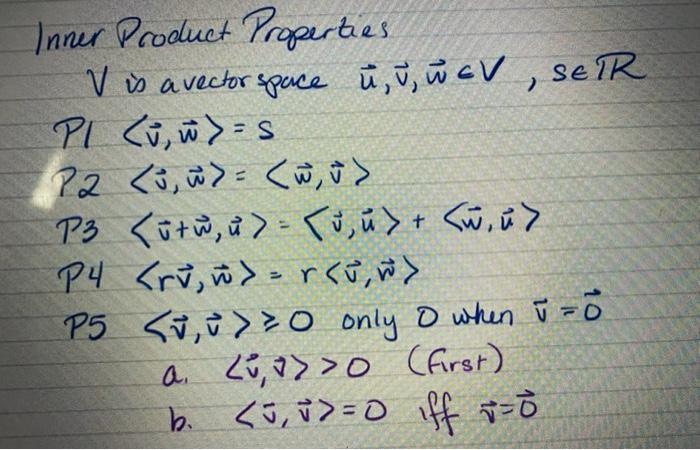 Inner Product Properties
V is a vector space u⃗, v⃗, w⃗ ∈ V , s ∈ ℝ
P1 <v⃗, w⃗> = s
P2 <v⃗, w⃗> = <w⃗, v⃗>
P3 <v⃗+w⃗, u⃗> = <v⃗, u⃗> + <w⃗, u⃗>
P4 <rv⃗, w⃗> = r<v⃗, w⃗>
P5 <v⃗, v⃗> ≥ 0 only 0 when v⃗ = 0⃗
a. <v⃗, v⃗> > 0 (first)
b. <v⃗, v⃗> = 0 iff v⃗ = 0⃗